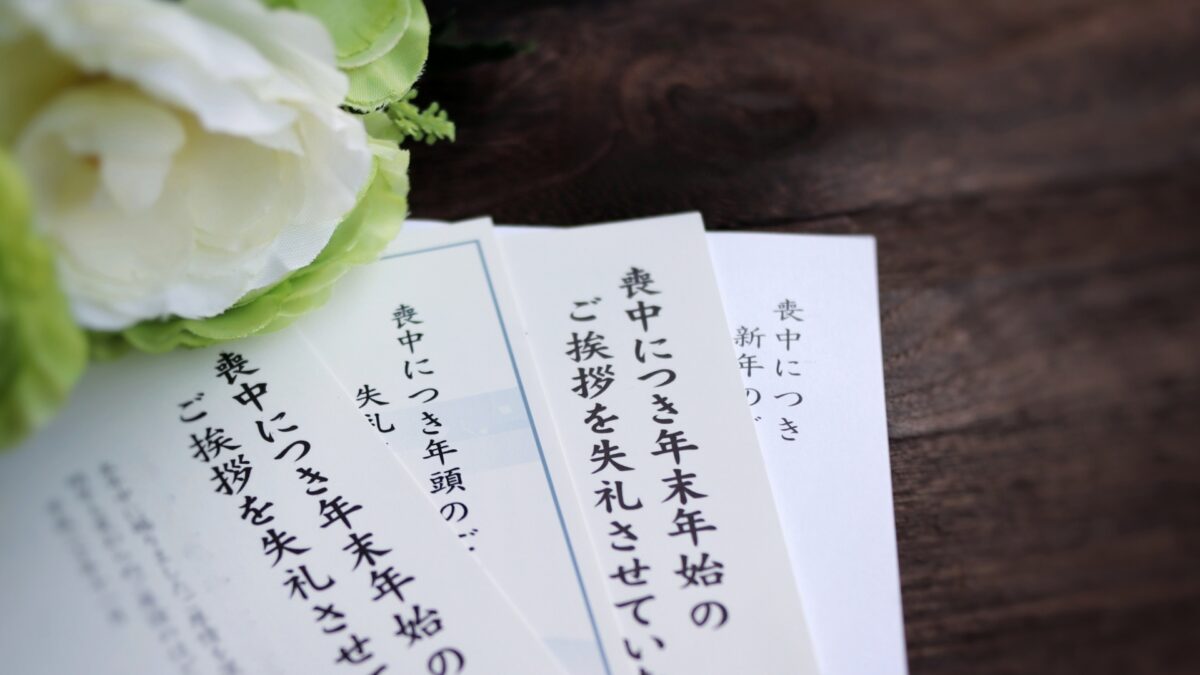 喪中につき年末年始の
ご挨拶を失礼させて
喪中につき年頭のご
失礼
喪中につき年末年始の
ご挨拶を失礼させてい
喪中につき
新年のご